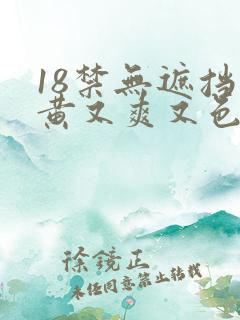 18禁無遮挡
黄又爽又色
徐镜正
未经同意禁止转载